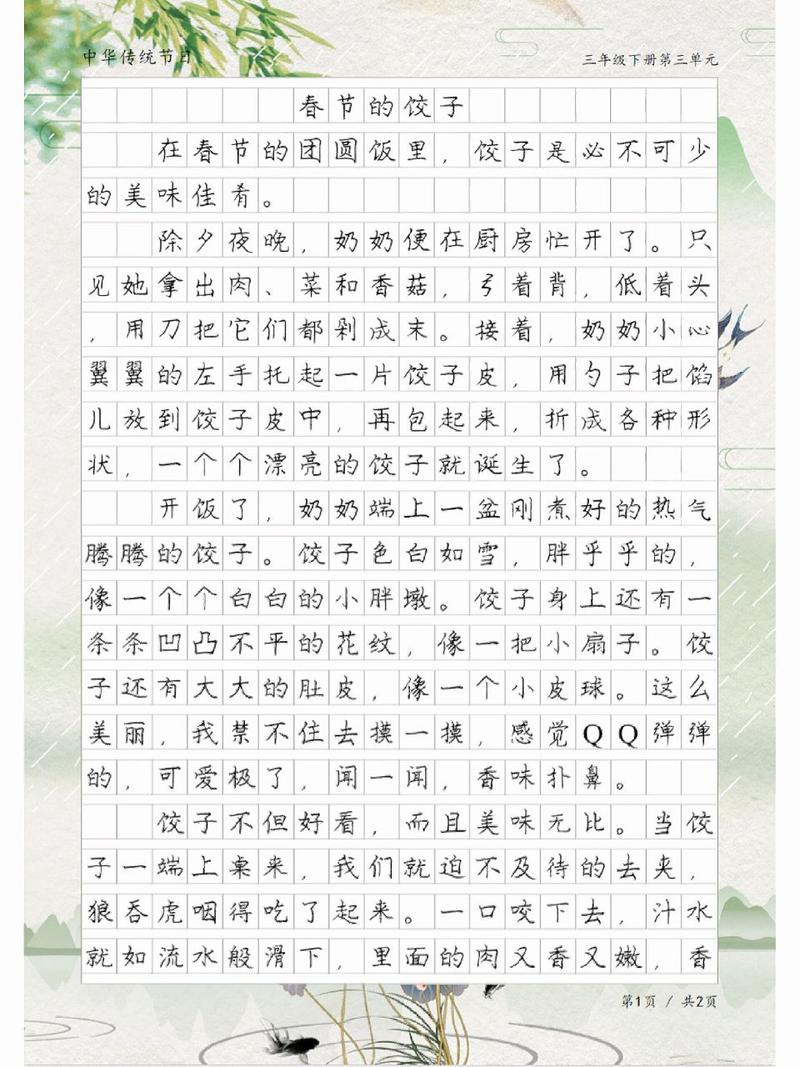 中华传统节日
三年级下册第三单元
春节的饺子
在春节的团圆饭里，饺子是必不可少
的美味佳肴。
除夕夜晚，奶奶便在厨房忙开了。只
见她拿出肉、菜和香菇，弓着背，低着头
，用刀把它们都剁成末。接着，奶奶小心
翼翼的左手托起一片饺子皮，用勺子把馅
儿放到饺子皮中，再包起来，折成各种形
状，一个个漂亮的饺子就诞生了。
开饭了，奶奶端上一盆刚煮好的热气
腾腾的饺子。饺子色白如雪，胖乎乎的，
像一个个白白的小胖墩。饺子身上还有一
条条凹凸不平的花纹，像一把小扇子。饺
子还有大大的肚皮，像一个小皮球。这么
美丽，我禁不住去摸一摸，感觉QQ弹弹
的，可爱极了，闻一闻，香味扑鼻。
饺子不但好看，而且美味无比。当饺
子一端上桌来，我们就迫不及待的去夹，
狼吞虎咽得吃了起来。一口咬下去，汁水
就如流水般滑下，里面的肉又香又嫩，香
第1页 / 共2页